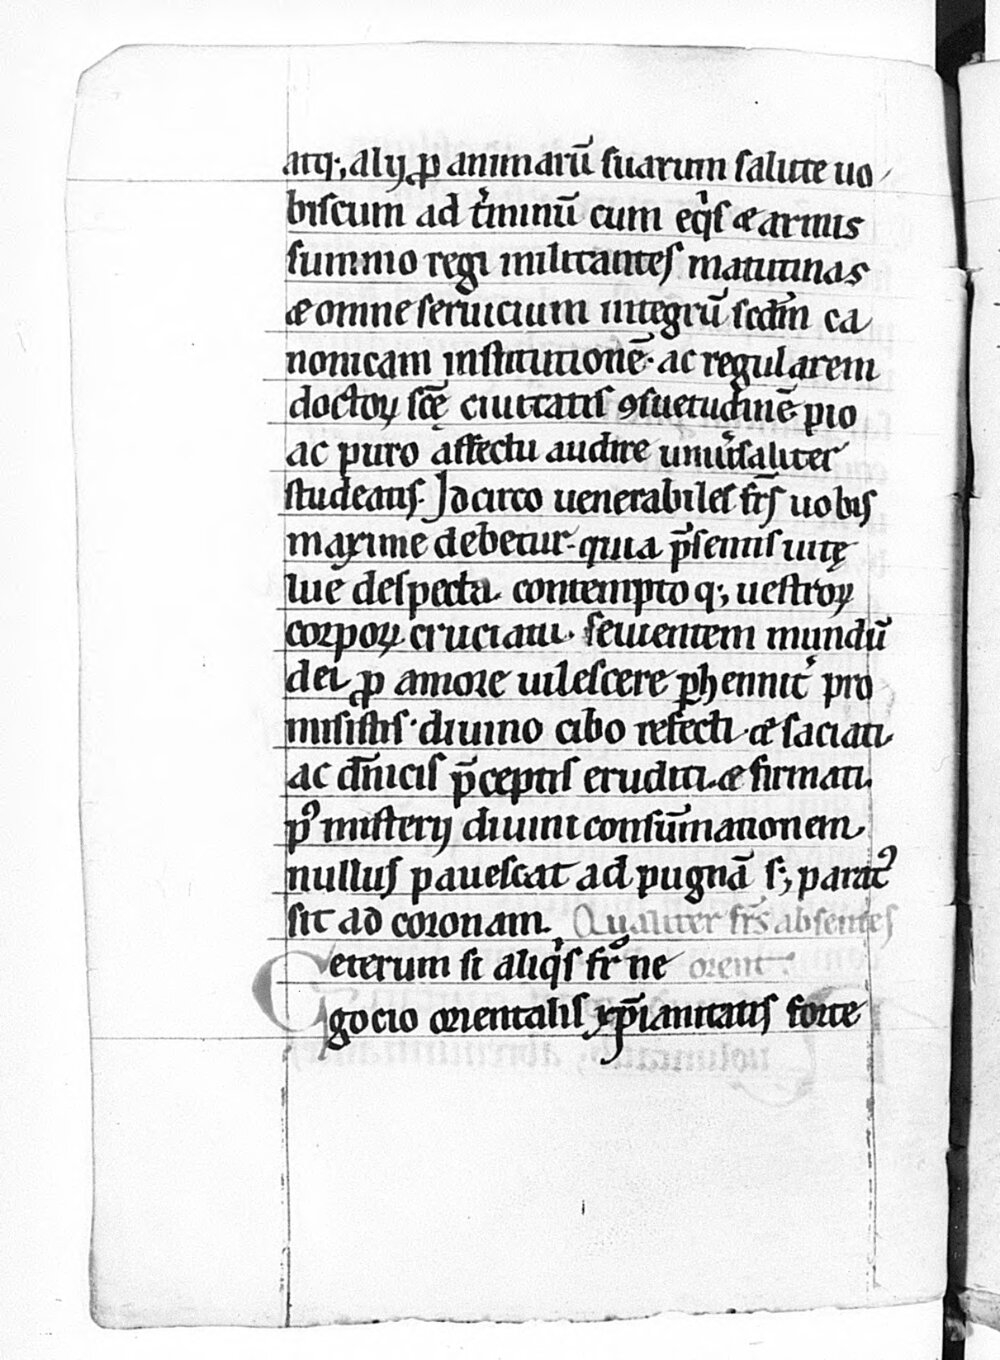 atq;, alij ꝓ animarū suarum salute uo
biscum ad tͥminū cum eqͥs & armis
summo regi militantes matutinas
& omne seruicium integrū scd̄m ca
nonicam institutionē· ac regularem
doctoꝝ scę̄ ciuitatis ꝯsuetudinē pio
ac puro affectu audire uniuͥsaliter
studeatis. Idcirco uenerabiles frs̄ uobis
maxime debetur· quia p̄sentis uitę
lue despecta. contemptoq;, uestroꝝ
corpoꝝ cruciatu. seuientem mundū
dei ꝓ amore uilescere ꝑhenniť pro
misistis· diuino cibo refecti· & saciati.
ac dn̄icis p̄ceptis eruditi. & firmati.
pꝰ misterij diuini consūmationem.
nullus pauescat ad pugnā s;, paratꝰ
sit ad coronam. Qualiter frs̄ absentes
Ceterum si aliqͥs frͦ ne orent.
gocio orientalis xp̄ianitatis forte